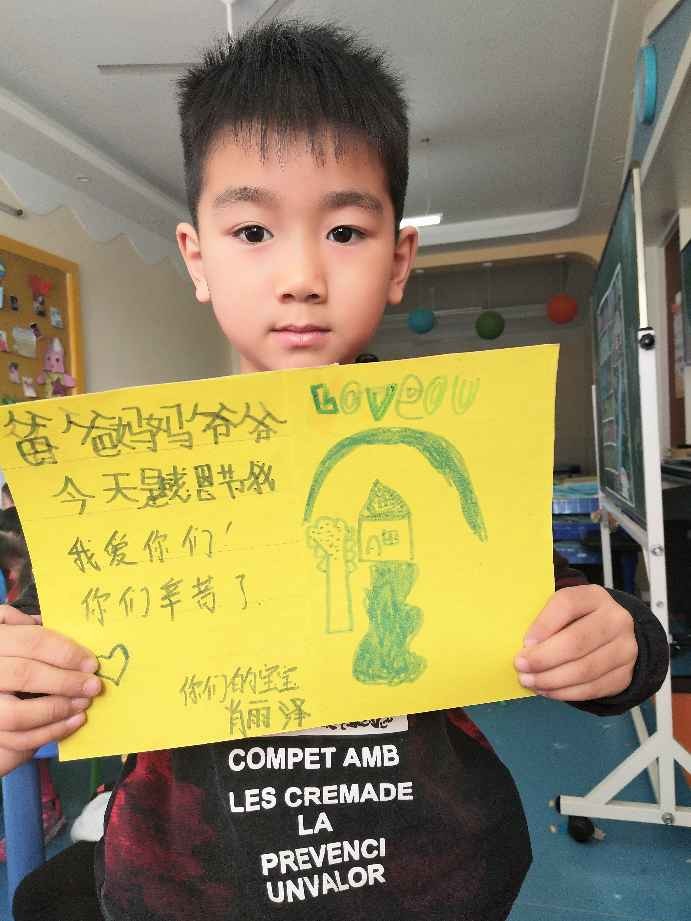 爸爸妈妈爷爷
今天是感恩节我
我爱你们!
你们辛苦了.
你们的宝宝
肖丽泽
LOVEOU
COMPET AMB
LES CREMADE
LA
PREVENCI
UNVALOR